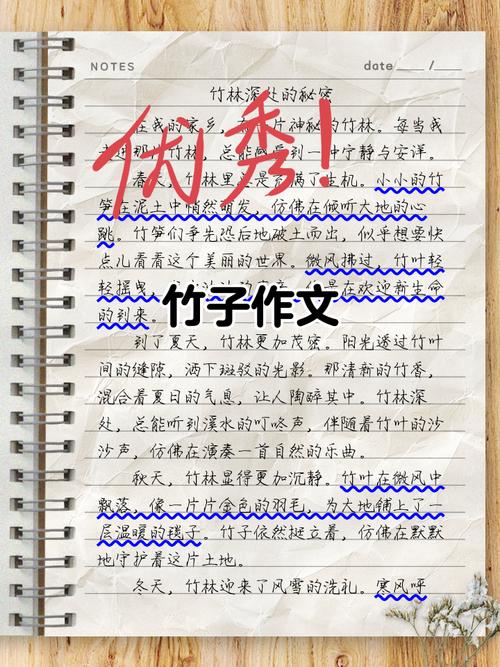 NOTES date____ /____
竹林深处的秘密
优秀！
在我的家乡，有片神秘的竹林。每当我
走进那片竹林，总能感受到一种宁静与安详。
春天，竹林里总是充满了生机。小小的竹
笋在泥土中悄然萌发，仿佛在倾听大地的心
跳。竹笋们争先恐后地破土而出，似乎想要快
点儿看看这个美丽的世界。微风拂过，竹叶轻
轻摇曳，是在欢迎新生命
的到来。
竹子作文
到了夏天，竹林更加茂密。阳光透过竹叶
间的缝隙，洒下斑驳的光影。那清新的竹香，
混合着夏日的气息，让人陶醉其中。竹林深
处，总能听到溪水的叮咚声，伴随着竹叶的沙
沙声，仿佛在演奏一首自然的乐曲。
秋天，竹林显得更加沉静。竹叶在微风中
飘落，像一片片金色的羽毛，为大地铺上了一
层温暖的毯子。竹子依然挺立着，仿佛在默默
地守护着这片土地。
冬天，竹林迎来了风雪的洗礼。寒风呼